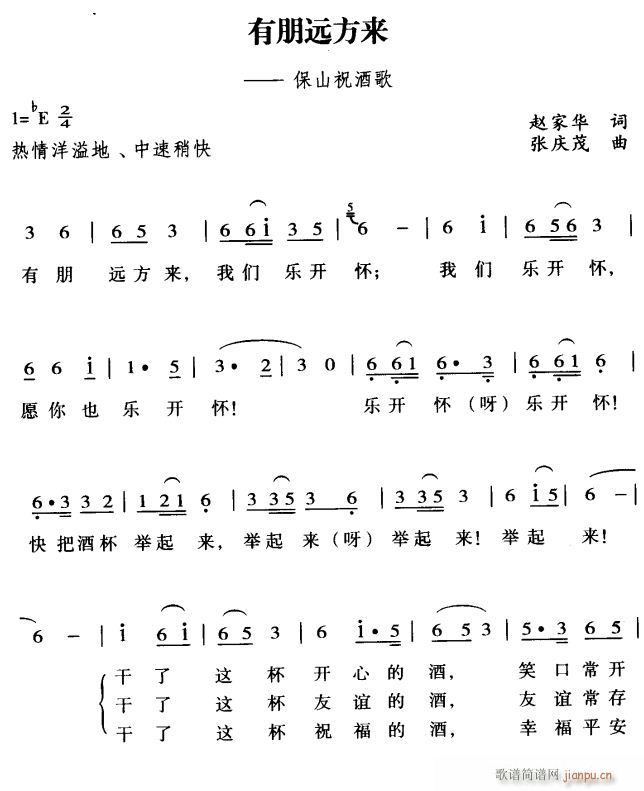 有朋远方来
—— 保山祝酒歌
1=♭E 2/4
赵家华 词
热情洋溢地、中速稍快
张庆茂 曲
3 6 | 6 5 3 | 6 6 i 3 5 | 5 6 - | 6 i | 6 5 6 3 |
有 朋 远 方 来, 我 们 乐 开 怀; 我 们 乐 开 怀,
6 6 i | 1· 5 | 3· 2 | 3 0 | 6 6 1 6· 3 | 6 6 1 6 |
愿 你 也 乐 开 怀! 乐 开 怀 (呀) 乐 开 怀!
6·3 3 2 | 1 2 1 6 | 3 3 5 3 6 | 3 3 5 3 | 6 i 5 | 6 - |
快 把 酒 杯 举 起 来, 举 起 来 (呀) 举 起 来! 举 起 来!
6 - | i 6 i | 6 5 3 | 6 i·5 | 6 5 3 | 5·3 6 5 |
干 了 这 杯 开 心 的 酒, 笑 口 常 开
干 了 这 杯 友 谊 的 酒, 友 谊 常 存
干 了 这 杯 祝 福 的 酒, 幸 福 平 安
歌谱简谱网 jianpu.cn